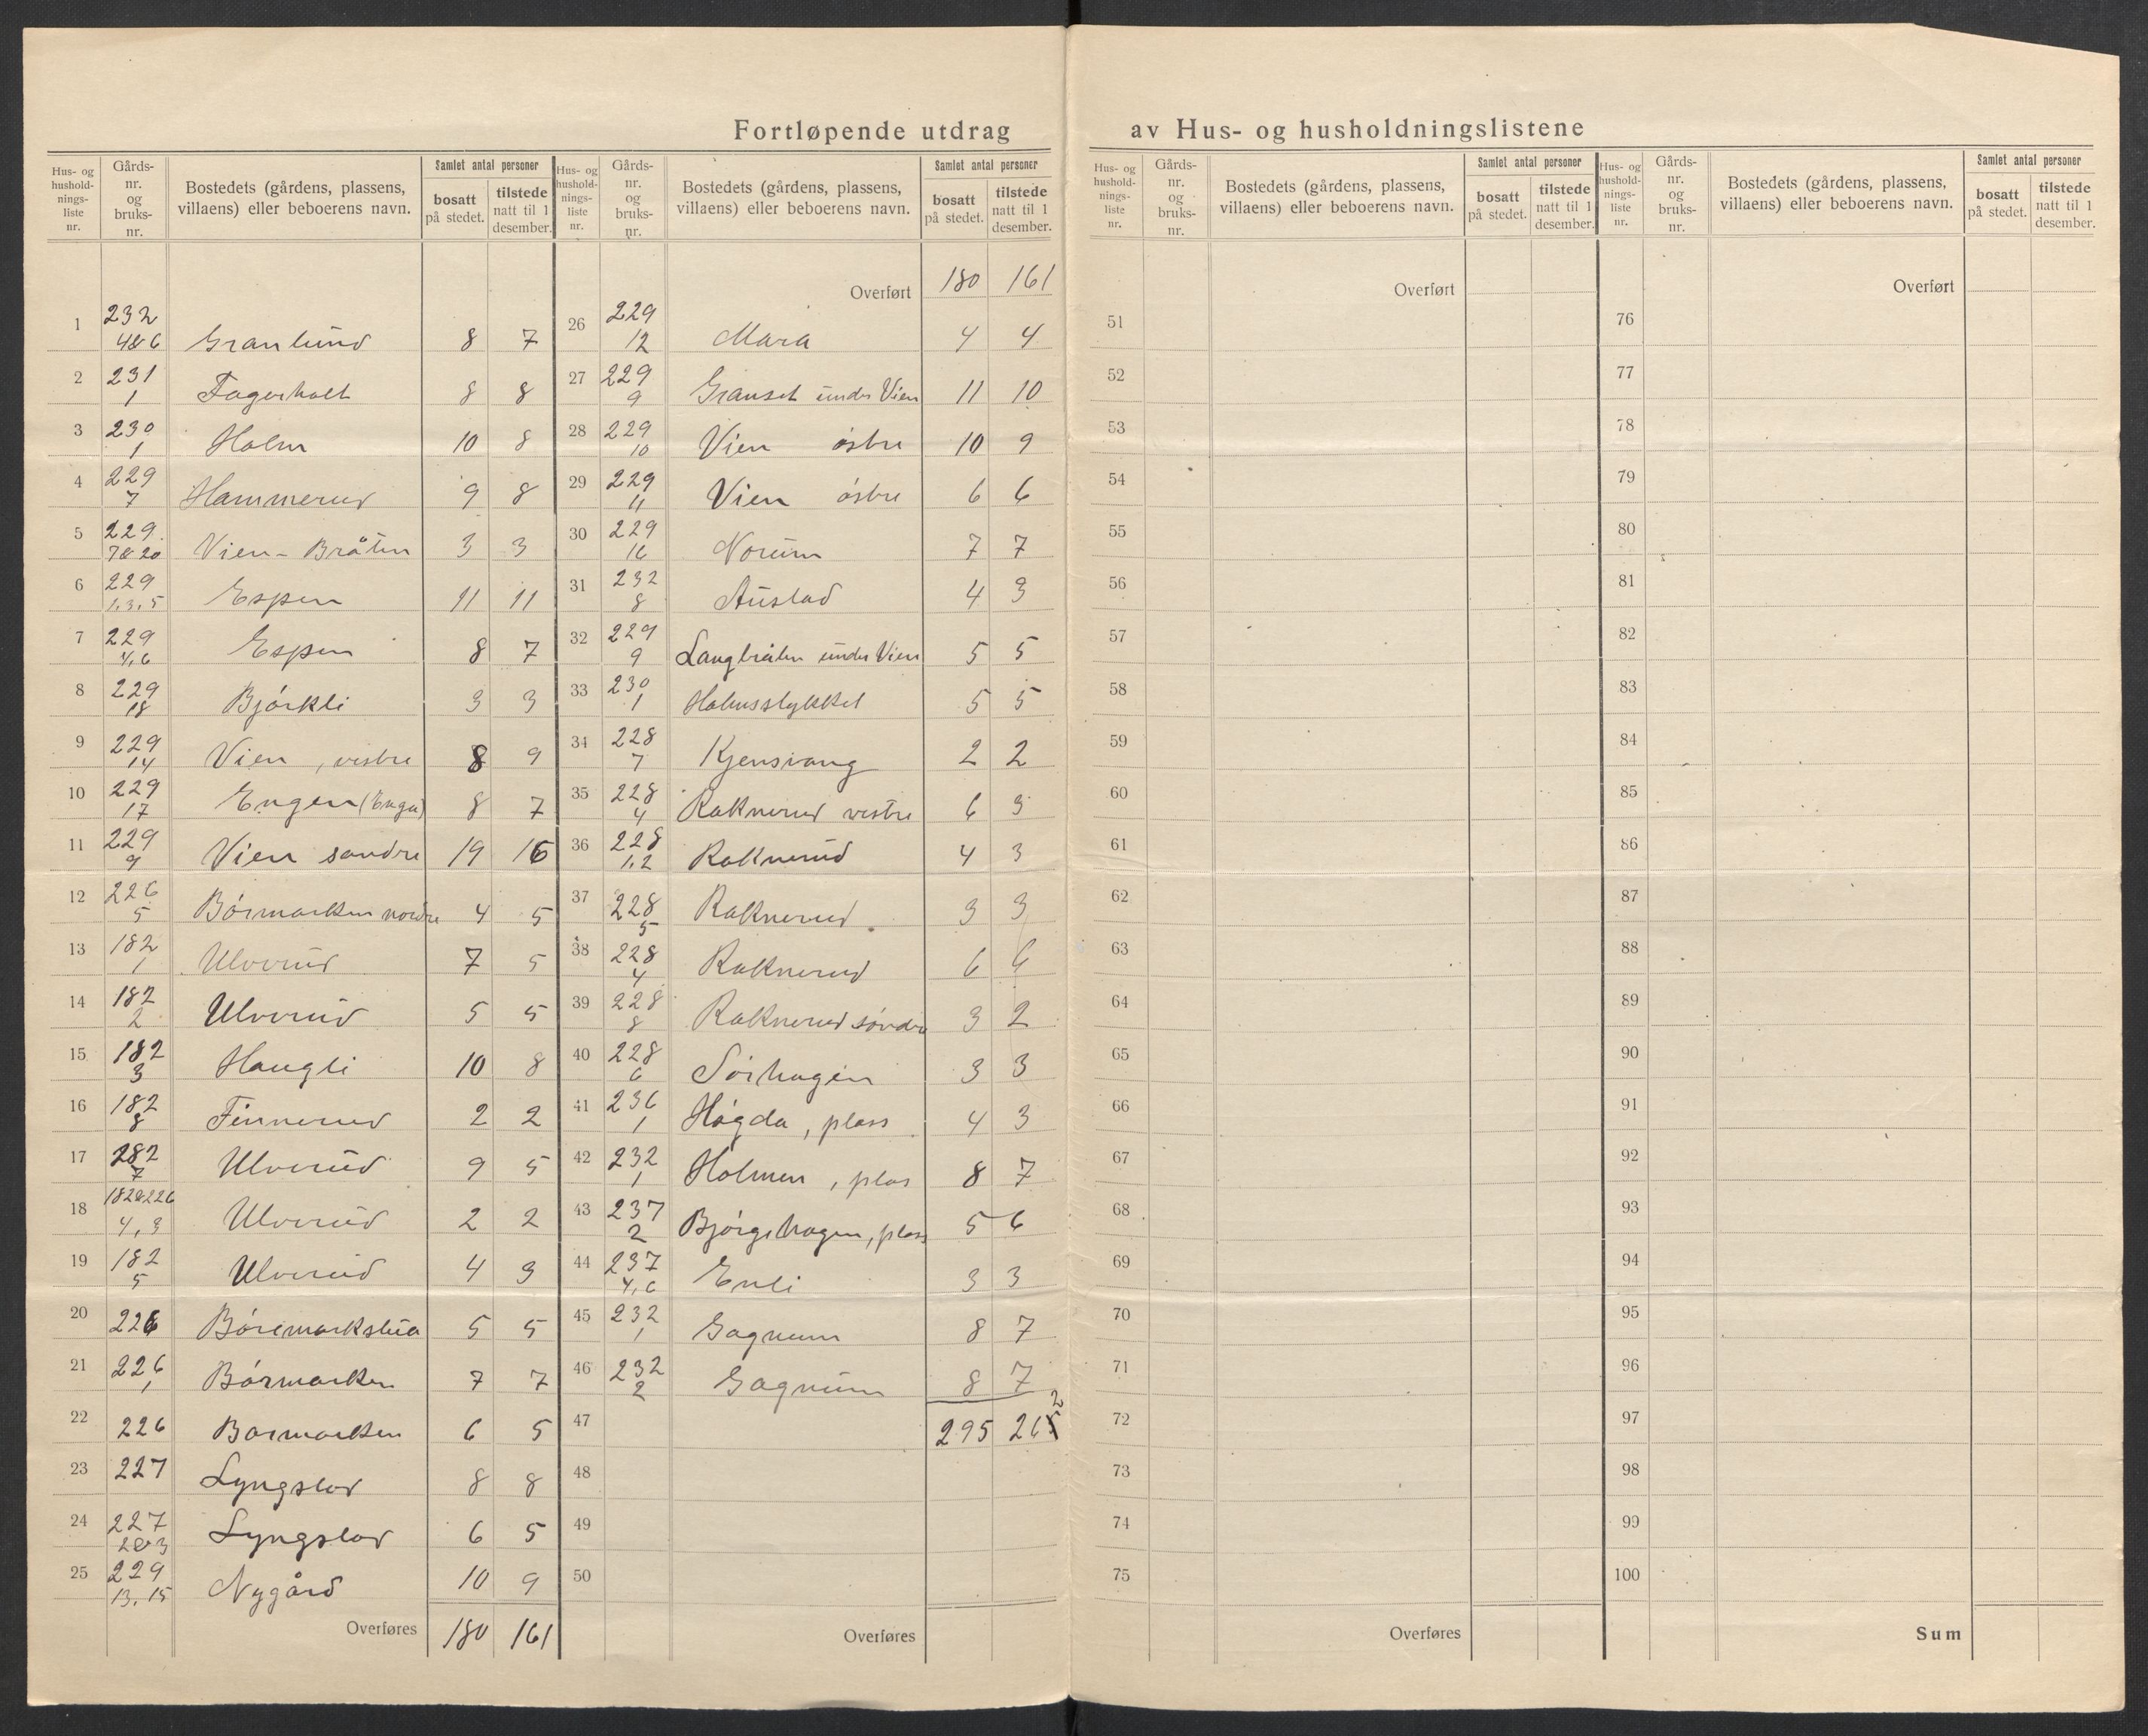 Fortløpende utdrag av Hus- og husholdningslistene
Hus- og hushold- nings- liste nr. Gårds- nr. og bruks- nr. Bostedets (gårdens, plassens, villaens) eller beboerens navn. Samlet antal personer bosatt på stedet. tilstede natt til 1 desember.
1 232 4&6 Granlund 8 7
2 231 1 Fagerholt 8 8
3 230 1 Holm 10 8
4 229 7 Hammerud 9 8
5 229 7&20 Vien-Bråten 3 3
6 229 1,3,5 Espen 11 11
7 229 4,6 Espen 8 7
8 229 18 Bjørkli 3 3
9 229 14 Vien, vestre 8 9
10 229 17 Engen (Enga) 8 7
11 229 9 Vien søndre 19 16
12 226 5 Børmarken nordre 4 5
13 182 1 Ulverud 7 5
14 182 2 Ulverud 5 5
15 182 3 Haugli 10 8
16 182 8 Finnerud 2 2
17 282 7 Ulverud 9 5
18 182&226 4,3 Ulverud 2 2
19 182 5 Ulverud 4 3
20 226 Børemarkstua 5 5
21 226 1 Børmarken 7 7
22 226 Børmarken 6 5
23 227 Lyngslov 8 8
24 227 2&3 Lyngslov 6 5
25 229 13,15 Nygård 10 9
Overføres 180 161
Hus- og hushold- nings- liste nr. Gårds- nr. og bruks- nr. Bostedets (gårdens, plassens, villaens) eller beboerens navn. Samlet antal personer bosatt på stedet. tilstede natt til 1 desember.
Overført 180 161
26 229 12 Mara 4 4
27 229 9 Granset under Vien 11 10
28 229 10 Vien østre 10 9
29 229 11 Vien østre 6 6
30 229 16 Norum 7 7
31 232 8 Austad 4 3
32 229 9 Langbråten under Vien 5 5
33 230 1 Holmsstykket 5 5
34 228 7 Kjensvang 2 2
35 228 4 Raknerud vestre 6 3
36 228 1,2 Raknerud 4 3
37 228 5 Raknerud 3 3
38 228 4 Raknerud 6 6
39 228 8 Raknerud søndre 3 2
40 228 6 Sørhagen 3 3
41 236 1 Høgda, plass 4 3
42 232 1 Holmen, plas 8 7
43 237 2 Bjørgehagen, plass 5 6
44 237 4,6 Enli 3 3
45 232 1 Gagnum 8 7
46 232 2 Gagnum 8 7
47 295 265 2
48
49
50
Overføres
Hus- og hushold- nings- liste nr. Gårds- nr. og bruks- nr. Bostedets (gårdens, plassens, villaens) eller beboerens navn. Samlet antal personer bosatt på stedet. tilstede natt til 1 desember.
Overført
51
52
53
54
55
56
57
58
59
60
61
62
63
64
65
66
67
68
69
70
71
72
73
74
75
Overføres
Hus- og hushold- nings- liste nr. Gårds- nr. og bruks- nr. Bostedets (gårdens, plassens, villaens) eller beboerens navn. Samlet antal personer bosatt på stedet. tilstede natt til 1 desember.
Overført
76
77
78
79
80
81
82
83
84
85
86
87
88
89
90
91
92
93
94
95
96
97
98
99
100
Sum